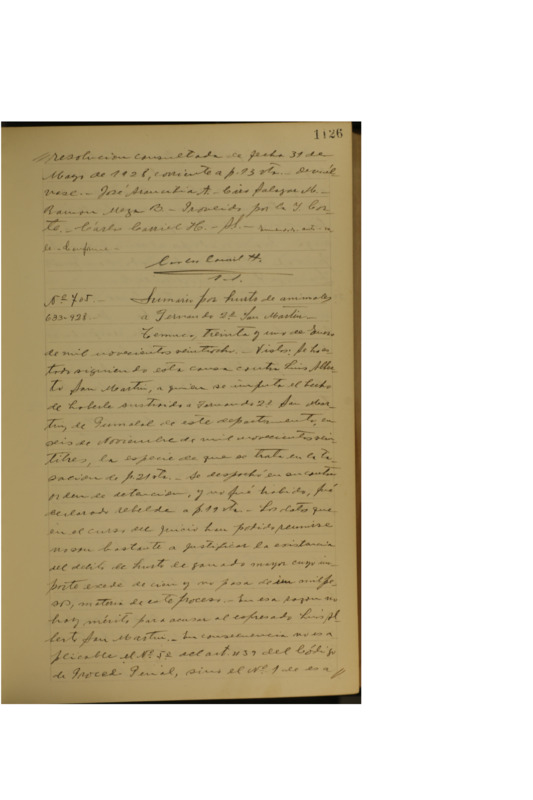 1126
resolucion consultada de fecha 31 de
Mayo de 1928, corriente a f. 23 vta. - Devuél
vase. - José Arancibia A. - Ciro Salazar M. -
Ramon Meza B. - Proveído por la I. Cor-
te. - Cárlos Coursel H. - St. -
Carlos Coursel H.
S. S.
Nº 705 - Sumario por hurto de animales
633-928. a Fernando 2º San Martin. -
Temuco, treinta y uno de Enero
de mil novecientos veintiocho. - Vistos: Se ha es-
tado siguiendo esta causa contra Luis Alber-
to San Martin, a quien se imputa el hecho
de haberle sustraido a Fernando 2º San Mar-
tin, de de este departamento, en
seis de Noviembre de mil novecientos vein-
titres, la especie de que se trata en la ta-
sacion de f. 21 vta. - Se despachó en su contra
orden de detencion, y no fué habido, fué
declarado rebelde a f. 19 vta. - Los datos que
en el curso del juicio han podido reunirse
no son bastante a justificar la existencia
del delito de hurto de ganado mayor cuyo im-
porte excede de cien y no pasa de un mil pe-
sos, materia de este proceso. - En esa razon no
hay mérito para acusar al espresado Luis Al
berto San Martin. - En consecuencia no es a
plicable el Nº 5º del art. 439 del Código
de Proced. Penal, sino el Nº 1 de esa